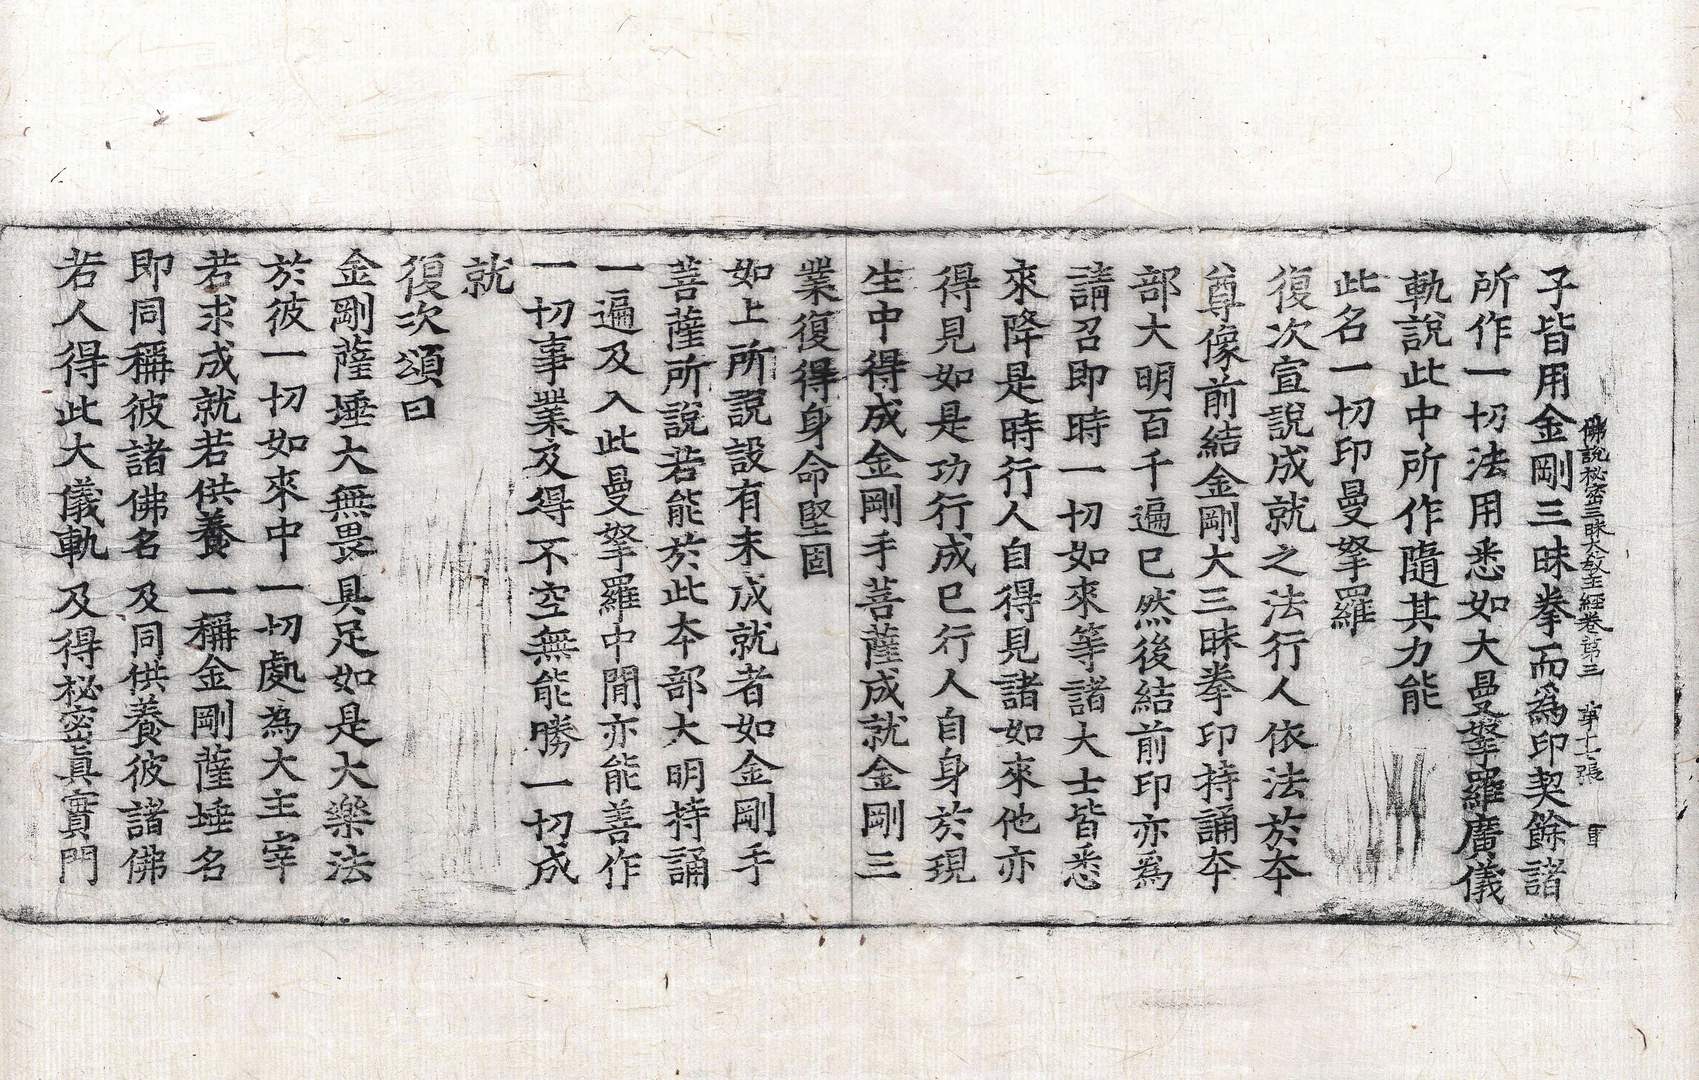 佛說秘密三昧大教王經卷第三 第十一張
子皆用金剛三昧拳而爲印契餘諸
所作一切法用悉如大曼拏羅廣儀
軌說此中所作隨其力能
此名一切印曼拏羅
復次宣說成就之法行人依法於夲
尊像前結金剛大三昧拳印持誦夲
部大明百千遍已然後結前印亦為
請召即時一切如來等諸大士皆悉
來降是時行人自得見諸如來他亦
得見如是功行成已行人自身於現
生中得成金剛手菩薩成就金剛三
業復得身命堅固
如上所說設有未成就者如金剛手
菩薩所說若能於此夲部大明持誦
一遍及入此曼拏羅中閒亦能善作
一切事業及得不空無能勝一切成
就
復次頌曰
金剛薩埵大無畏具足如是大樂法
於彼一切如來中一切處為大主宰
若求成就若供養一稱金剛薩埵名
即同稱彼諸佛名及同供養彼諸佛
若人得此大儀軌及得秘密真實門